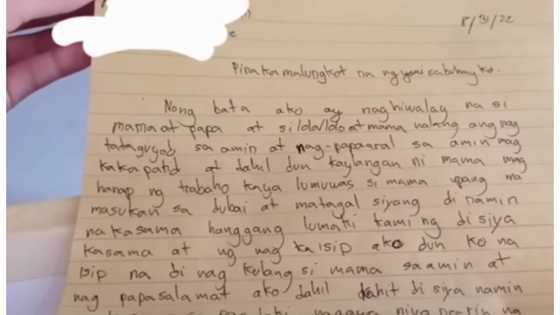 8/31/22
Pinakamalungkot na ngyari sabuhay ko.
Nong bata ako ay naghiwalay na si
mama at papa at si lola/lolo at mama nalang ang nag
tataguyod sa amin at nag-papaaral sa amin mag
kakapatid at dahil dun kaylangan ni mama mag
hanap ng trabaho kaya lumuwas si mama upang ma
masukan sa dubai at matagal siyang di namin
nakasama hanggang lumaki kaming di siya
kasama at ng nag kaisip ako dun ko na
isip na di nag kulang si mama sa amin at
nag papasalamat ako dahil kahit di siya namin